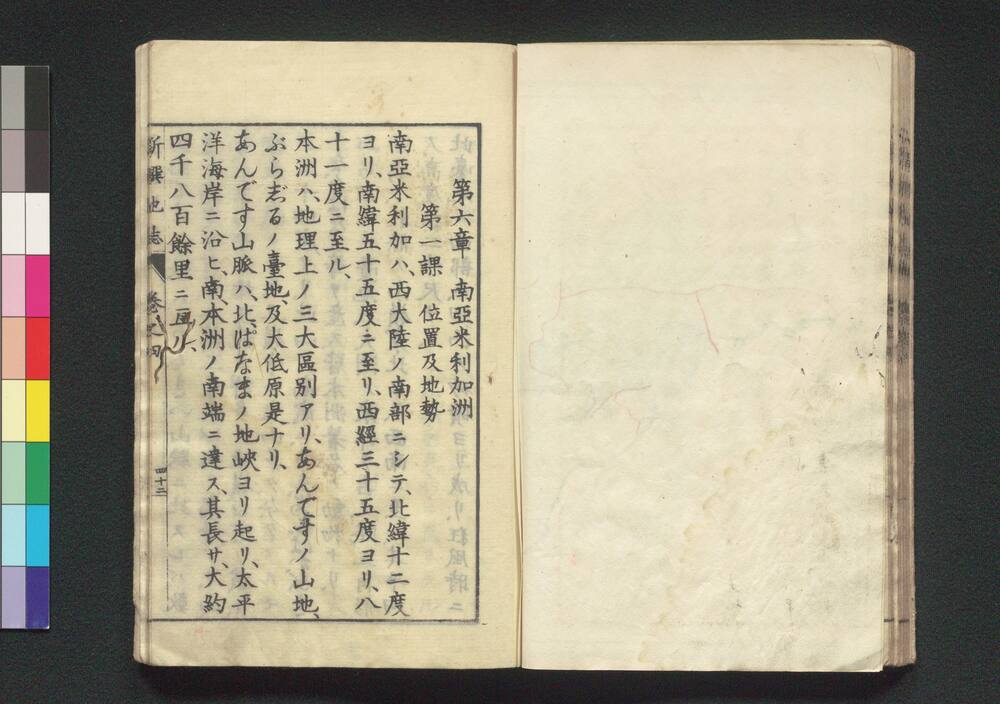 第六章 南亞米利加洲
第一課 位置及地勢
南亞米利加ハ、西大陸ノ南部ニシテ、北緯十二度
ヨリ、南緯五十五度ニ至リ、西經三十五度ヨリ、八
十一度ニ至ル、
本洲ハ、地理上ノ三大區別アリ、あんですノ山地、
ぶらしるノ臺地、及大低原是ナリ、
あんです山脈ハ、北、ぱなまノ地峽ヨリ起リ、太平
洋海岸ニ沿ヒ、南、本洲ノ南端ニ達ス、其長サ、大約
四千八百餘里ニ亘ル、
新撰地誌 卷之四 四十二